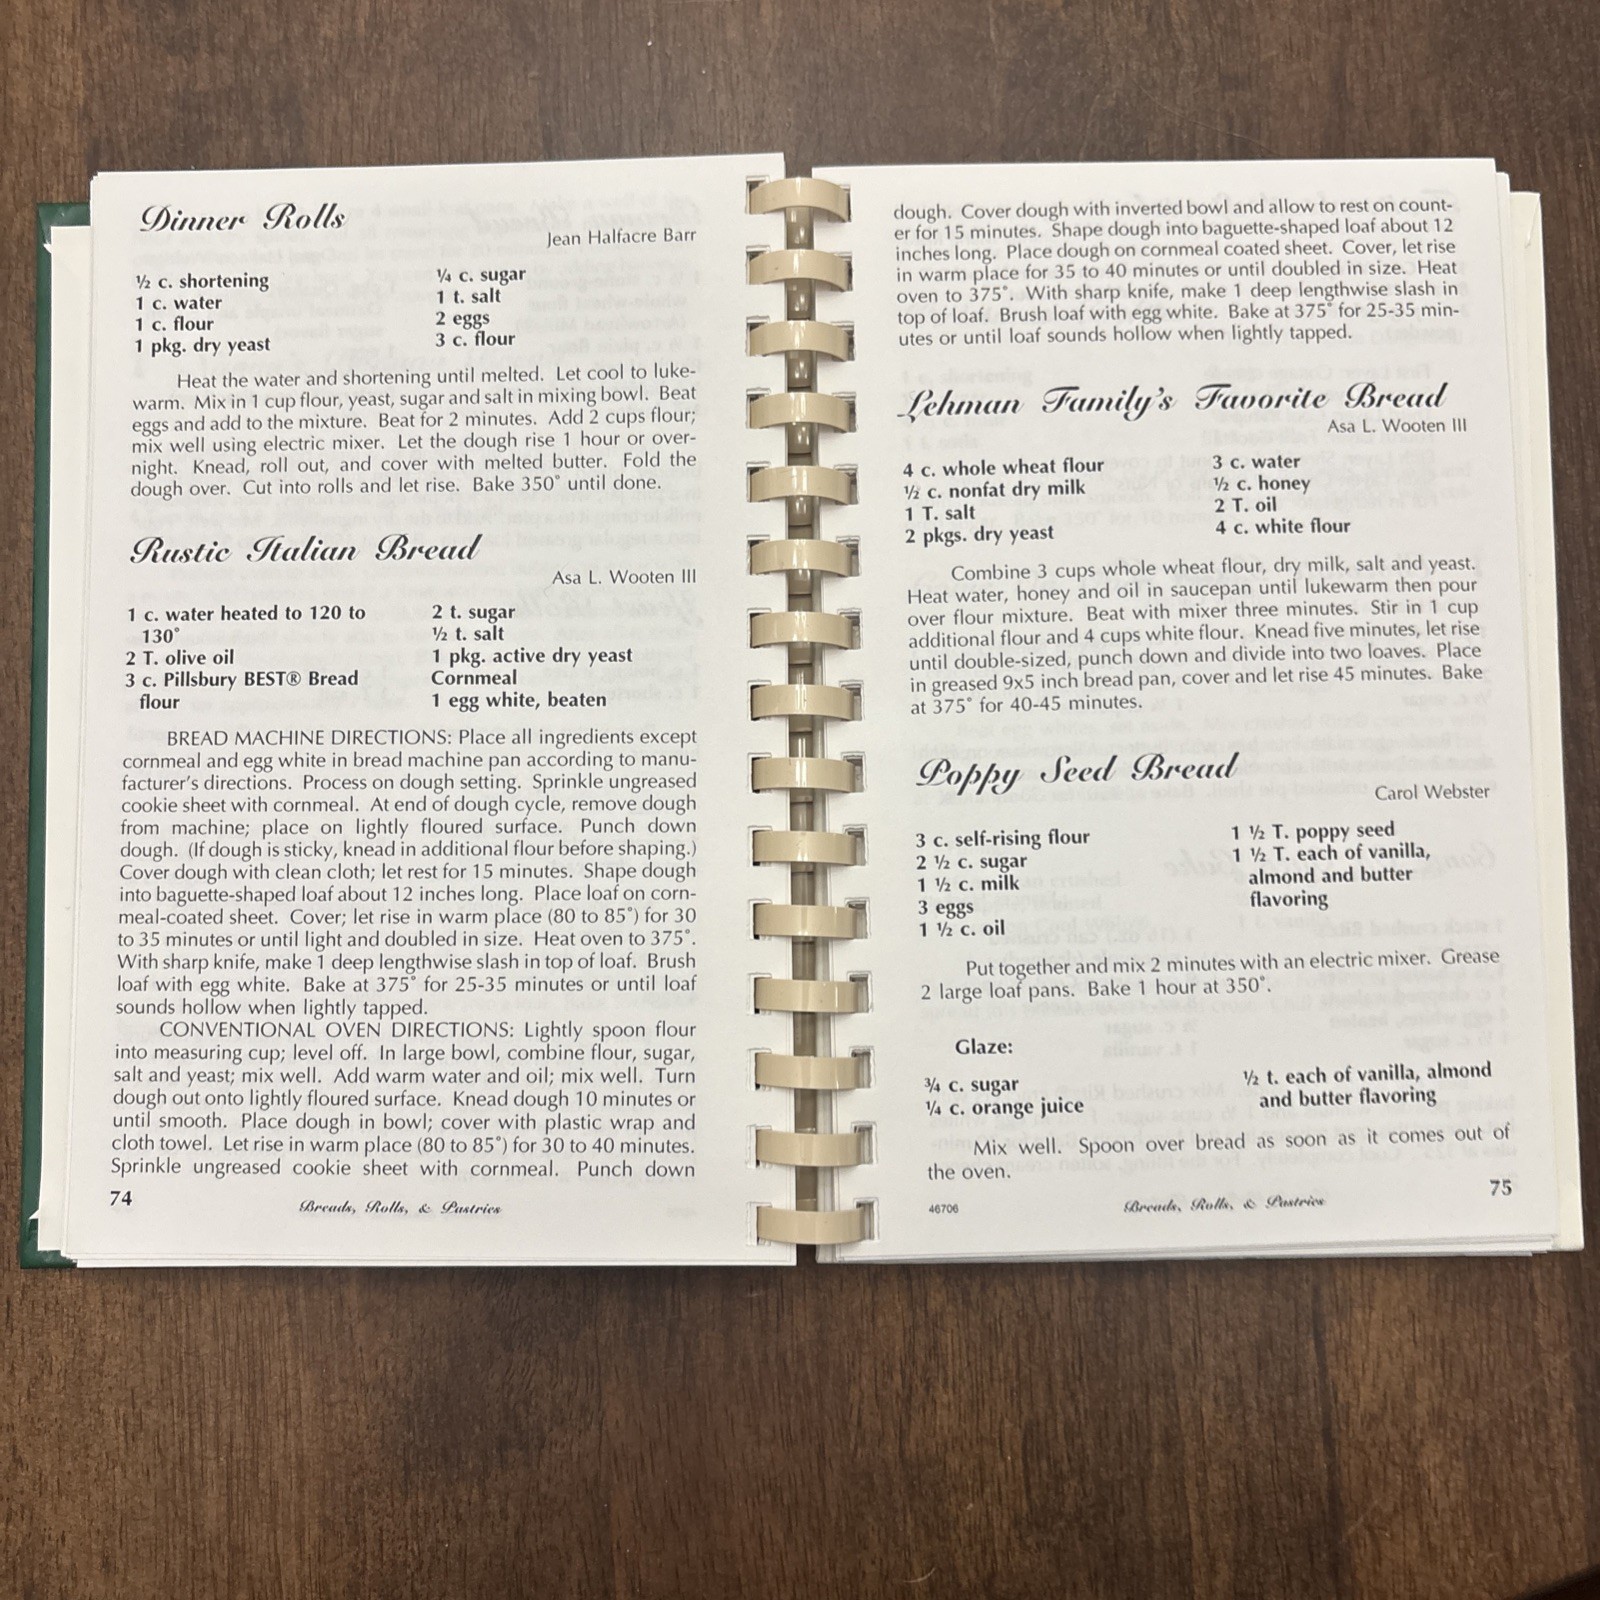 Dinner Rolls
Jean Halfacre Barr
½ c. shortening
1 c. water
1 c. flour
1 pkg. dry yeast
¼ c. sugar
1 t. salt
2 eggs
3 c. flour
Heat the water and shortening until melted. Let cool to luke-
warm. Mix in 1 cup flour, yeast, sugar and salt in mixing bowl. Beat
eggs and add to the mixture. Beat for 2 minutes. Add 2 cups flour;
mix well using electric mixer. Let the dough rise 1 hour or over-
night. Knead, roll out, and cover with melted butter. Fold the
dough over. Cut into rolls and let rise. Bake 350° until done.
Rustic Italian Bread
Asa L. Wooten III
1 c. water heated to 120 to
130°
2 T. olive oil
3 c. Pillsbury BEST® Bread
flour
2 t. sugar
½ t. salt
1 pkg. active dry yeast
Cornmeal
1 egg white, beaten
BREAD MACHINE DIRECTIONS: Place all ingredients except
cornmeal and egg white in bread machine pan according to manu-
facturer's directions. Process on dough setting. Sprinkle ungreased
cookie sheet with cornmeal. At end of dough cycle, remove dough
from machine; place on lightly floured surface. Punch down
dough. (If dough is sticky, knead in additional flour before shaping.)
Cover dough with clean cloth; let rest for 15 minutes. Shape dough
into baguette-shaped loaf about 12 inches long. Place loaf on corn-
meal-coated sheet. Cover; let rise in warm place (80 to 85°) for 30
to 35 minutes or until light and doubled in size. Heat oven to 375°.
With sharp knife, make 1 deep lengthwise slash in top of loaf. Brush
loaf with egg white. Bake at 375° for 25-35 minutes or until loaf
sounds hollow when lightly tapped.
CONVENTIONAL OVEN DIRECTIONS: Lightly spoon flour
into measuring cup; level off. In large bowl, combine flour, sugar,
salt and yeast; mix well. Add warm water and oil; mix well. Turn
dough out onto lightly floured surface. Knead dough 10 minutes or
until smooth. Place dough in bowl; cover with plastic wrap and
cloth towel. Let rise in warm place (80 to 85°) for 30 to 40 minutes.
Sprinkle ungreased cookie sheet with cornmeal. Punch down
74
Breads, Rolls, & Pastries
dough. Cover dough with inverted bowl and allow to rest on count-
er for 15 minutes. Shape dough into baguette-shaped loaf about 12
inches long. Place dough on cornmeal coated sheet. Cover, let rise
in warm place for 35 to 40 minutes or until doubled in size. Heat
oven to 375°. With sharp knife, make 1 deep lengthwise slash in
top of loaf. Brush loaf with egg white. Bake at 375° for 25-35 min-
utes or until loaf sounds hollow when lightly tapped.
Lehman Family's Favorite Bread
Asa L. Wooten III
4 c. whole wheat flour
½ c. nonfat dry milk
1 T. salt
2 pkgs. dry yeast
3 c. water
½ c. honey
2 T. oil
4 c. white flour
Combine 3 cups whole wheat flour, dry milk, salt and yeast.
Heat water, honey and oil in saucepan until lukewarm then pour
over flour mixture. Beat with mixer three minutes. Stir in 1 cup
additional flour and 4 cups white flour. Knead five minutes, let rise
until double-sized, punch down and divide into two loaves. Place
in greased 9x5 inch bread pan, cover and let rise 45 minutes. Bake
at 375° for 40-45 minutes.
Poppy Seed Bread
Carol Webster
3 c. self-rising flour
2 ½ c. sugar
1 ½ c. milk
3 eggs
1 ½ c. oil
1 ½ T. poppy seed
1 ½ T. each of vanilla,
almond and butter
flavoring
Put together and mix 2 minutes with an electric mixer. Grease
2 large loaf pans. Bake 1 hour at 350°.
Glaze:
¾ c. sugar
¼ c. orange juice
½ t. each of vanilla, almond
and butter flavoring
Mix well. Spoon over bread as soon as it comes out of
the oven.
46706
Breads, Rolls, & Pastries
75